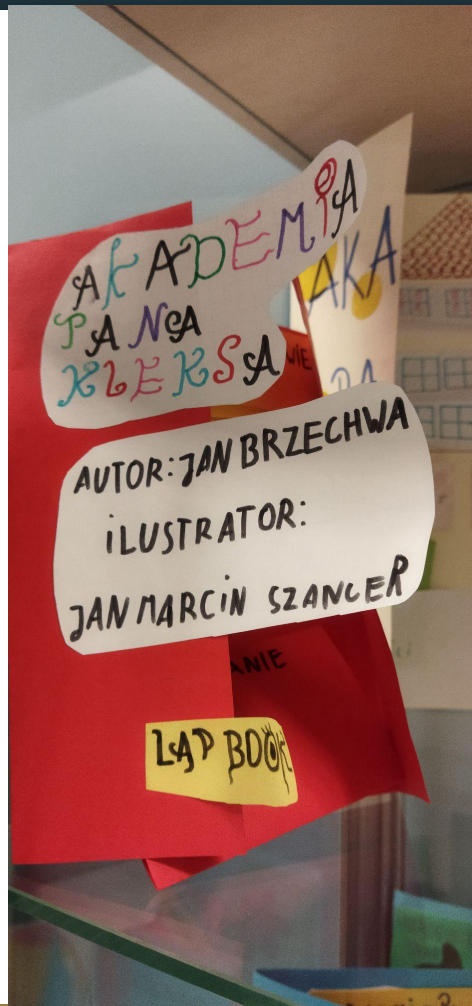 AKADEMIA
PANA
KLEKSA
AUTOR: JAN BRZECHWA
iLUSTRATOR:
JAN MARCiN SZANCER
LAP BOOK
AKA
WIE
ANIE